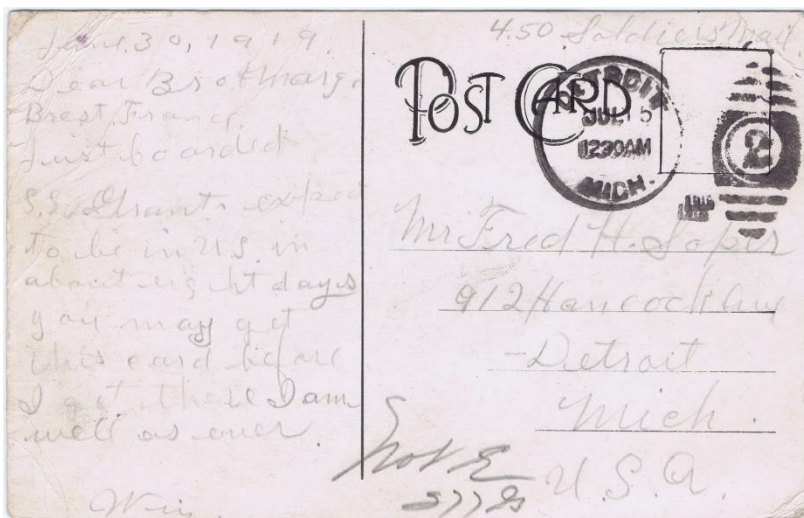 June 30, 1919.
Dear Bro & Marg.
Brest, France
Just boarded
S.S. Grant. expect
to be in U.S. in
about eight days
you may get
this card before
I get there I am
well as ever.
4.50 Soldiers Mail
POST CARD
DETROIT
JUL 15
1230AM
MICH.
2
Mr Fred H. Soper
912 Hancock Ave
Detroit
Mich.
U.S.A.